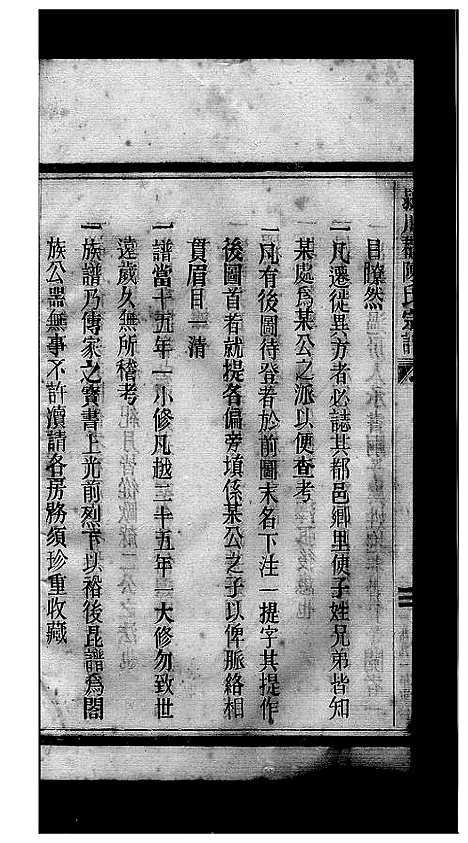 川賴陳氏宗譜
目瞭然
一凡遷徙異方者必誌其都邑鄉里使子姓兄弟皆知
某處爲某公之派以便查考
一凡有後圖待登者於前圖末名下注一提字其提作
後圖首者就提各偏旁塡係某公之子以俾脈絡相
貫眉目一清
一譜當十五年一小修凡越三十五年一大修勿致世
遠歲久無所稽考
一族譜乃傳家之寶書上光前烈下以裕後昆譜爲閤
族公器無事不許瀆請各房務須珍重收藏